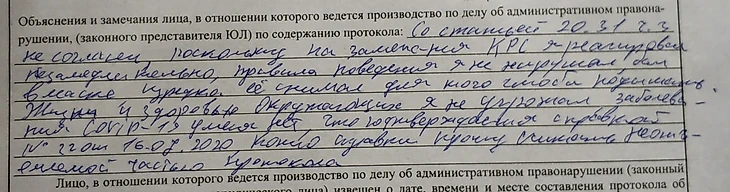 Объяснения и замечания лица, в отношении которого ведется производство по делу об административном правона-
рушении, (законного представителя ЮЛ) по содержанию протокола: Со статьей 20.31 ч.
не согласен, поскольку на замечания КРС я реагировал
незамедлительно, правила поведения я не нарушал, был
в маске изредка её снимал для того чтобы подышать
Жизни и здоровью окружающих я не угрожал заболева-
ния COVID-19 у меня нет, что подтверждается справкой
от 16.07.2020 копию справки прошу считать неотъ-
емлемой частью протокола
Лицо, в отношении которого ведется производство по делу об административном правонарушении (законный
лица) извещен о дате, времени и месте составления протокола об